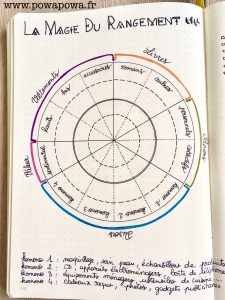 www.powapowa.fr
LA MAGIE DU RANGEMENT
Livres
Vêtements
hauts
bas
accessoires
romans
autres
Papiers
sentimental
Divers
Komono 4
Komono 3
Komono 2
Komono 1
Komono 1 : maquillage, soin peau, échantillons de produits
Komono 2 : CD, appareils électroménagers, boîte de téléphone
Komono 3 : équipements ménagers, ustensiles de cuisine...
Komono 4 : cadeaux reçus, photos, gadgets publicitaires